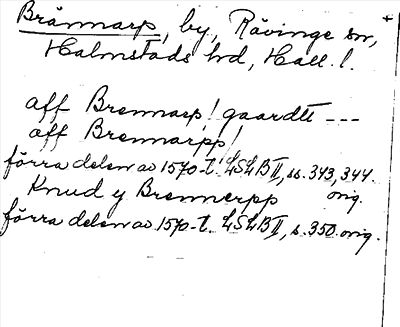 Brännarp, by, Rävinge sn, +
Halmstads hd, Hall. l.
aff Brennarp! gaardtt ---
aff Brennarpp!
förra delen av 1570-t. LSLB II, ss. 343, 344.
Knud y Brennerpp orig.
förra delen av 1570-t. LSLB II, s. 350. orig.